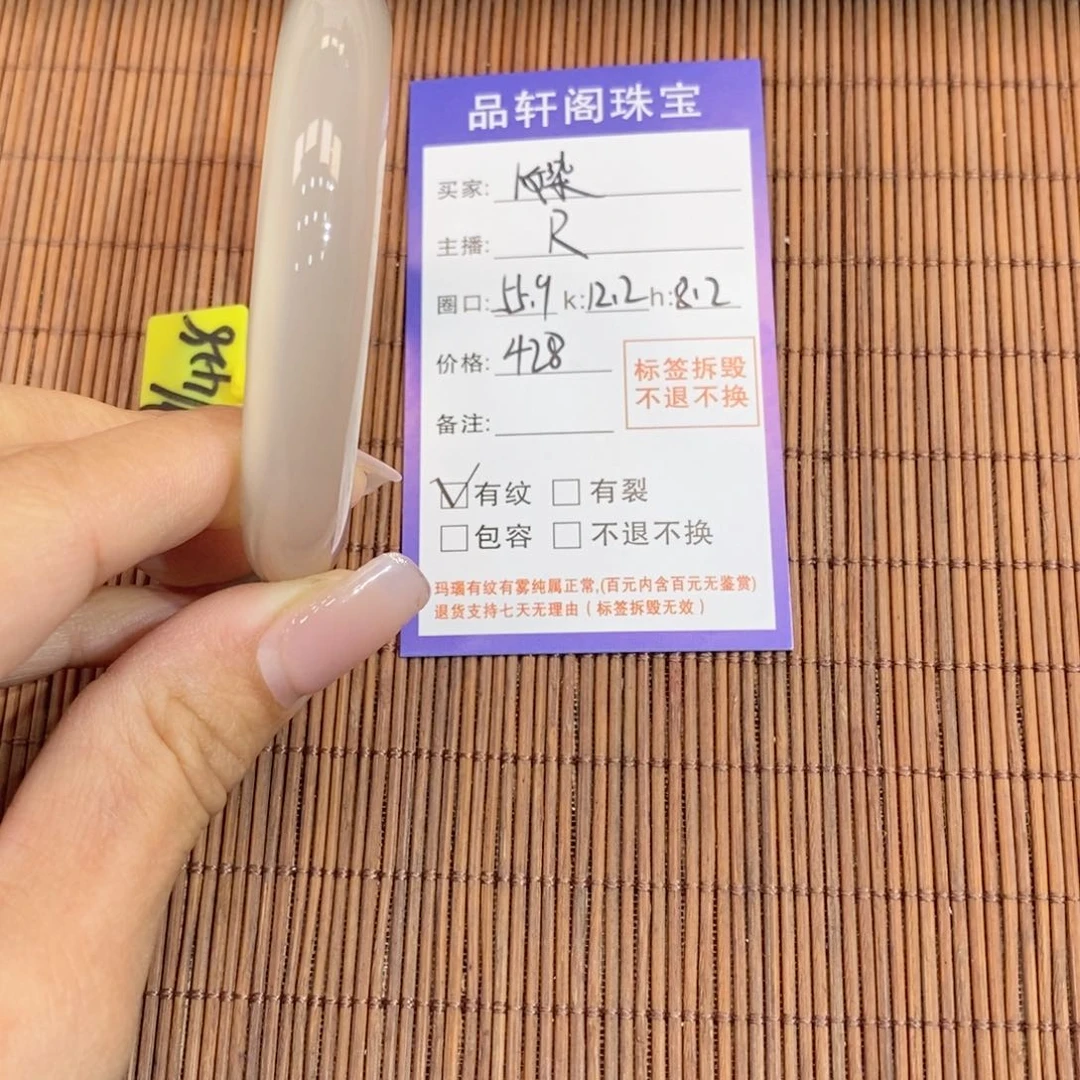 品轩阁珠宝
买家: 染
主播: R
圈口: 55.9 k: 12.2 h: 8.2
价格: 428
标签拆毁
不退不换
备注:
有纹 有裂
包容 不退不换
玛瑙有纹有雾纯属正常,(百元内含百元无鉴赏)
退货支持七天无理由(标签拆毁无效)